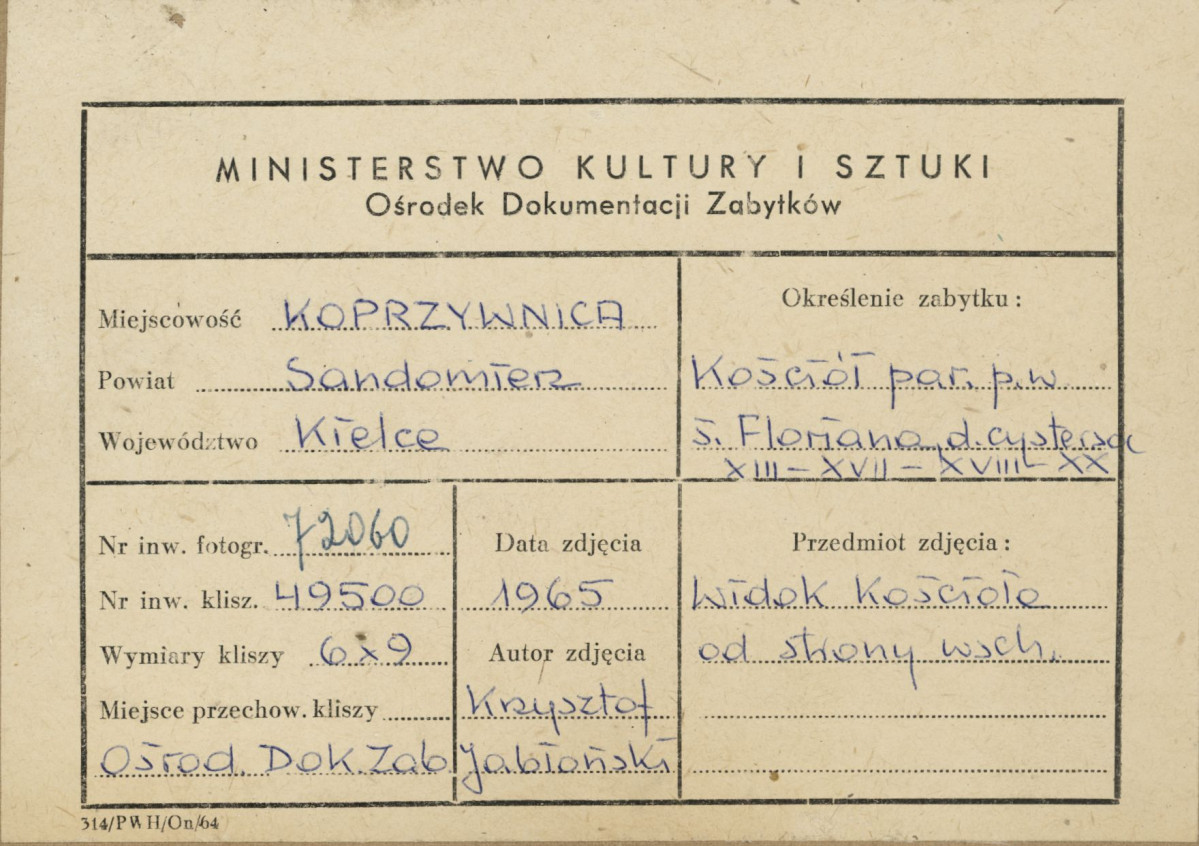 MINISTERSTWO KULTURY I SZTUKI
Ośrodek Dokumentacji Zabytków
Miejscowość KOPRZYWNICA
Powiat Sandomierz
Województwo Kielce
Określenie zabytku:
Kościół par. p.w.
ś. Floriana, d. cystersów
XIII – XVII – XVIII – XX
Nr inw. fotogr. 72060
Nr inw. klisz. 49500
Wymiary kliszy 6x9
Miejsce przechow. kliszy
Ośrod. Dok. Zab.
Data zdjęcia
1965
Autor zdjęcia
Krzysztof
Jabłoński
Przedmiot zdjęcia:
Widok Kościoła
od strony wsch.
314/PWH/On/64